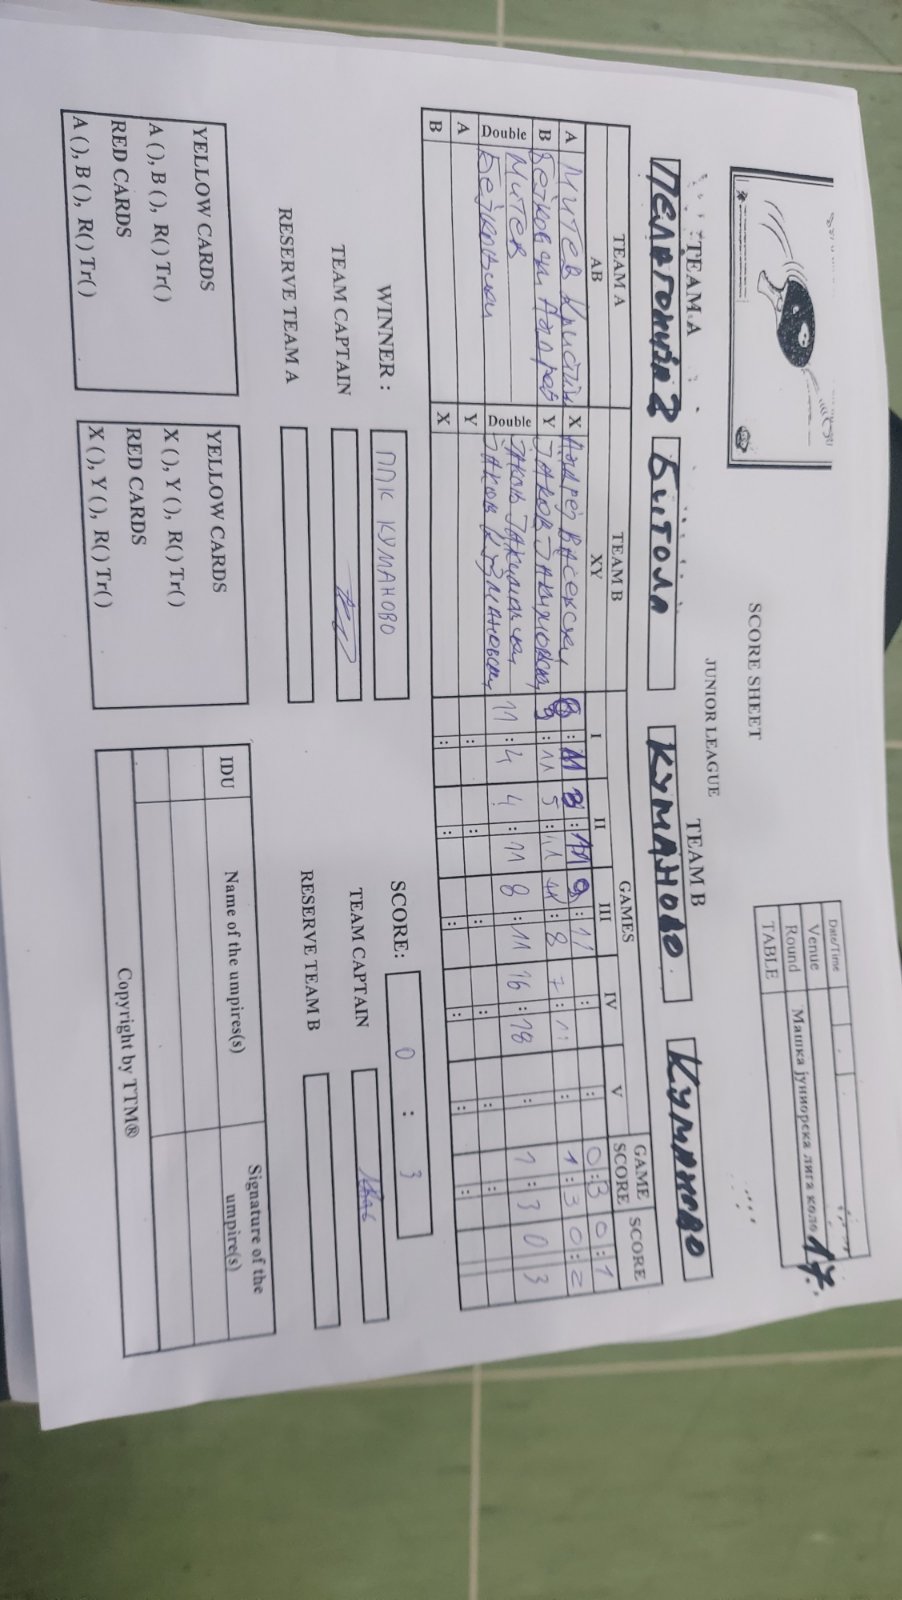 SCORE SHEET
JUNIOR LEAGUE
Date/Time
Venue
Round Машка јуниорска лига коло 17.
TABLE
TEAM A TEAM B
ПЕЛАГОНИЈА 2 БИТОЛА КУМАНОВО КУМАНОВО
TEAM A TEAM B GAMES GAME SCORE SCORE
AB XY I II III IV V
A Митев Кристијан X Андреј Васевски : 11 : 11 9 : 11 : : 0 : 3 0 : 1
B Бетковски Y Јаков Јакимовски : 11 5 : 11 11 : 8 7 : 11 : 1 : 3 0 : 2
Double Митев Double Јаков Јакимовски 11 : 4 4 : 11 8 : 11 16 : 18 : 1 : 3 0 3
Бетковски Јаков Кузмановски
A Y : : : : : :
B X : : : : : :
WINNER : ППК КУМАНОВО SCORE: 0 : 3
TEAM CAPTAIN TEAM CAPTAIN
RESERVE TEAM A RESERVE TEAM B
YELLOW CARDS
A (), B (), R() Tr()
RED CARDS
A (), B (), R() Tr()
YELLOW CARDS
X (), Y (), R() Tr()
RED CARDS
X (), Y (), R() Tr()
IDU Name of the umpires(s) Signature of the umpire(s)
Copyright by TTM®